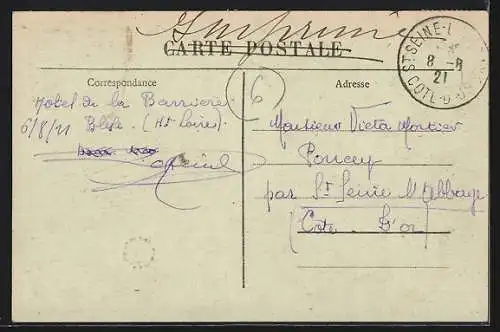 Imprimé
CARTE POSTALE
ST SEINE-L
8 -8
21
COTE-D'OR
Correspondance
Adresse
6
Hotel de la Barrière
6/8/21 Blesle (Hte Loire).
Monsieur Victor Mortier
Poncey
par St Seine l'Abbaye
(Cote d'or)